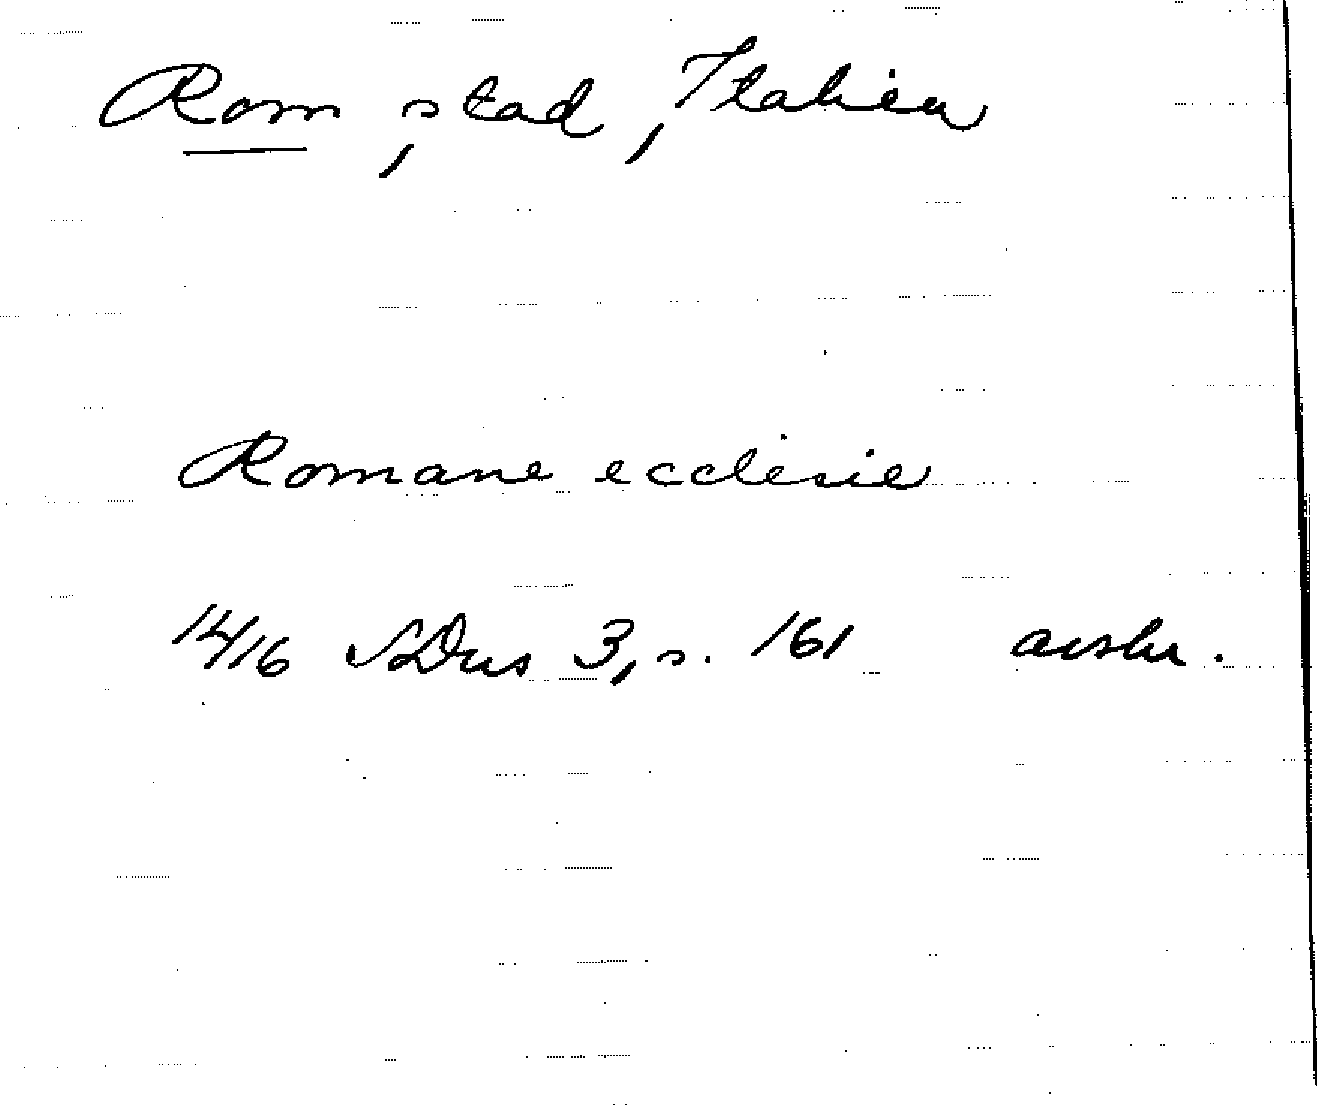 Rom, stad, Italien
Romane ecclesie
1416 SDns 3, s. 161 avskr.